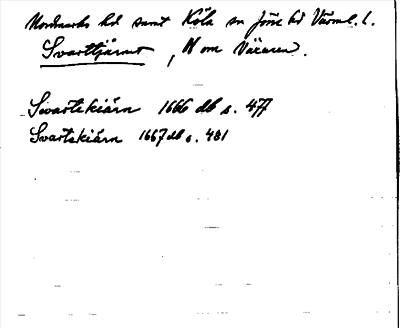 Nordmarks hd samt Köla sn Jösse hd Värml. l.
Svarttjärnet, N omVäraren.
Swartekiärn 1666 db s. 477
Svartekiärn 1667 db s. 481